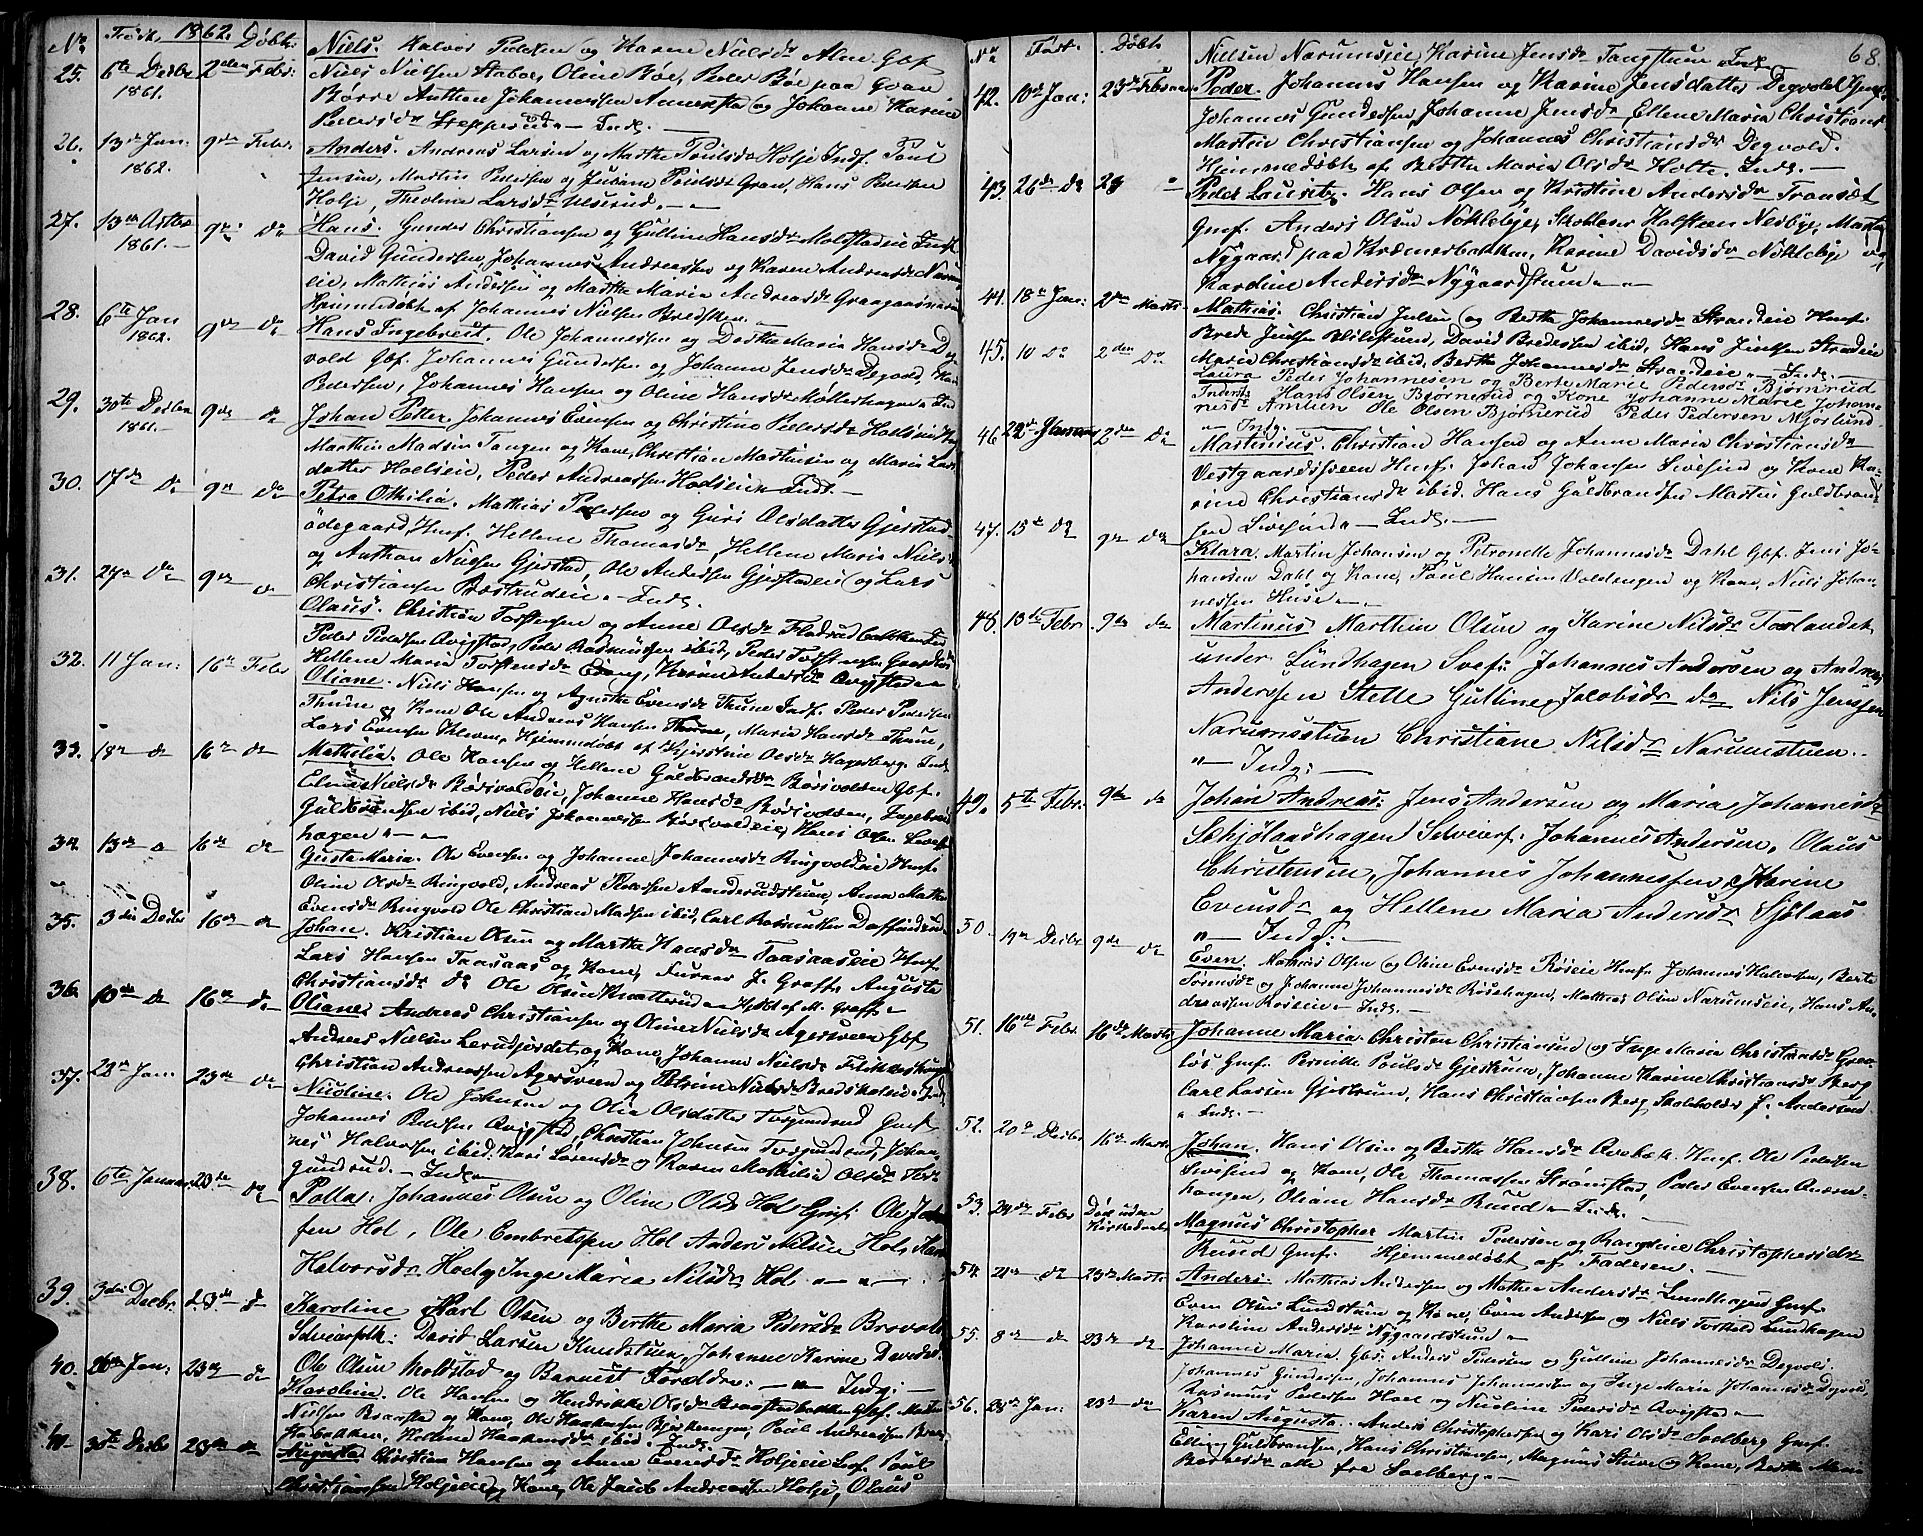 No Født, 1862. Døbt.
25. 6te Decbr 1861. 2den Febr: Niels. Halvor Pedersen og Karen Nielsdr Alm Gbf
Niels Nielsen Stabo, Oline Bøe, Peder Bøe paa Gran
Børre Anthon Johannessen Annexstad og Johanne Karine
Pedersdr Stepperud - Indf. -
26. 13de Jan: 1862. 9de Febr. Anders. Andreas Larsen og Marthe Poulsdr Holje Indf. Poul
Jensen, Martin Pedersen og Juliane Poulsdr Gran, Hans Pedersen
Holje, Theoline Larsdr
27. 13de 1861. 9de do Hans. Gunder Christiansen og Gulline Hansdr Molstadeie
David Gundersen, Johannes Andreassen og Karen Andreasdr
eie, Mathias Andersen og Marthe Maria Andreasdr
Hjemmedøbt af Johannes Nielsen
28. 6te Jan 1862. 9de do Hans Ingebret. Ole Johannessen og Dorthe Maria Hansdr Deg
vold Gbf. Johannes Gundersen og Johanne Jensdr Degvold,
Pedersen, Johannes Hansen og Oline Hansdr Møllerhagen Ind
29. 30te Decbr 1861. 9de do Johan Petter. Johannes Evensen og Christine Pedersdr Hoelseie
Marthin Madsen Tangen og Kone, Christian Mathisen og Maria Lars
datter Hoelseie, Peder Andreassen Hoelseie Indf. -
30. 17de do 9de do Petra Othilia. Mathias Pedersen og Guri Olsdatter Gjerstad
ødegaard, Hmf. Hellene Thomasdr, Hellene Maria Nielsdr
og Anthon Nielsen Gjerstad, Ole Andersen Gjerstadeie og Lars
Christiansen Prestrudeie. - Indf.
31. 27de do 9de do Olaus. Christian Torstensen og Anne Olsdr Fladrud
Peder Pedersen Qvigstad, Peder Rasmussen ibid, Peder
Hellene Maria Torstensdr Evang, Karine Andersdr Qvigstad
32. 11 Jan: 16de Febr Oliane. Niels Hansen og Agnethe Evensdr Thune Indf. Peder Pedersen
Thune og Kone Ole Andreas Hansen Thune, Maria Hansdr Thune,
Lars Evensen Hjemmedøbt af Kjerstine Olsdr Hagerberg. Indf
33. 18de do 16de do Mathilia. Ole Hansen og Hellene Guldbrandsdr Børsvolden Gbf.
Nielsdr Børsvoldeie, Johanne Hansdr Børsvolden, Ingebret
Guldbrandsen ibid, Niels Johannessen Børsvoldeie, Hans Olsen
hagen
34. 13de do 16de do Gusta Maria. Ole Evensen og Johanne Johannesdr Ringvoldeie Hmf.
Oline Olsdr Ringvold, Andreas Aanderudstuen, Anna Mathea
Evensdr Ringvold Ole Christian Madsen ibid, Carl Rasmussen Daffinrud
35. 3die Decbr 16de do Johan. Kristian Olsen og Marthe Hansdr Taasaaseie Hmf.
Lars Hansen Taasaas og Kone, J. Graff, Auguste
Christiansdr do Ole Olsen Knatterud Hjdbt af M. Graff
36. 10de do 16de do Oliane. Andreas Christiansen og Oline Nielsdr Agersveen Gbf
Andreas Nielsen og Kone, Johanne Nielsdr
Christian Andreassen Agersveen og Petrine Nielsdr
37. 22de Jan: 23de do Nicoline. Ole Johnsen og Olia Olsdatter Torgunrud Gmf
Johannes Pedersen Qvigstad, Christian Johnsen Torgunrud, Johan
nes Halvorsen ibid. Kari Larensdr og Karen Mathilia Olsdr Tor
gunrud. - Indf.
38. 6te Januar 23de do Pallas. Johannes Olsen og Oline Olsdr Hol Gmf: Ole
sen Hol, Ole Embretsen Hol Anders Nilsen Hol, Karen
Halvorsdr Hoel, Inge Maria Nilsdr Hol
39. 3die Decbr. 23de do Karoline Karl Olsen og Berthe Maria Pedersdr Brovold
Selveierfolk: David Larsen Knudstuen, Johanne Karine Davidsd.
Ole Olsen Molstad og Barnets Forældre: - Indf: -
40. 26de Jan: 23de do Karoline. Ole Hansen og Hendrikke Olsdr Gbf.
Nielsen og Kone, Ole Haakensen Bjerkengen, Poul Andreassen
bakken, Hellene Haakensdr ibid. Indf.
41 30te Decbr 23de do Augusta Christian Hansen og Anne Evensdr Holjeeie Poul
Christiansen Holjeeie og Kone, Ole Jacob Andreassen Holje, Olaus
No Født Døbt 68.
Nielsen Narumseie, Karine Jensdr Tangstuen Indf.
42. 10de Jan: 23de Februar Peder. Johannes Hansen og Karine Jensdatter Degvold Gmf.
Johannes Gundersen, Johanne Jensdr Ellene Maria Christians
Martin Christiansen og Johannes Christiansdr Degvold.
Hjemmedøbt af Berthe Maria Olsdr Holte. Indf. -
43. 26de do 23 " Peder Lauritz. Hans Olsen og Kristine Andersdr Traasæt
Gmf. Anders Olsen Nøkleby, Skoleholder Halsteen Nesbye, Martin
Nygaard paa Kræmerbakken, Karine Davidsdr Nøkleby og
Karoline Andersdr Nygaardstuen
44. 18de Jan: 2den Marts Mathias. Christian Julsen og Berthe Johannesdr Strandeie Hmf.
Brede Jensen, David Bredesen ibid, Hans Julsen Strandeie
Marie Christiansdr ibid, Berthe Johannesdr Strandeie - Indf.
45. 10 do 2den do Laura Peder Johannesen og Berte Marie Pedersdr Bjørnerud
Inderst Hans Olsen Bjørnerud og Kone Johanne Marie Johan-
nesdr Amlien Ole Olsen Bjørnerud Peder Pedersen Mjørlund
" Indf. -
46 22de Januar 2den do Martinius. Christian Hansen og Anne Maria Christiansdr
Vestgaardsveen Hmf. Johan Johansen Sivesind og Kone Ka-
rine Christiansdr ibid. Hans Guldbrandsen Martin Guldbrand
sen Sivesind - Indf. -
47. 15de do 9de do Klara. Martin Johansen og Petronelle Johannesdr Dahl Gbf. Jens Jo-
hansen Dahl og Kone, Poul Hansen Voldengen og Kone, Niels Johan-
nessen Huse
48. 13de Febr. 9de do Martinus Marthin Olsen og Karine Nilsdr Taalandek
under Lundhagen Svef: Johannes Andersen og Andreas
Anderssen Stelle Gulline Jacobsdr do Nils Jenssen
Narumstuen Christiane Nilsdr Narumstuen.
" - Indf: -
49. 5te Febr: 9de do Johan Andreas: Jens Andersen og Maria Johannesdr
Schjølaashagen Selveierf. Johannes Andersen, Olaus
Christensen, Johannes Johannessen, Karine
Evensdr og Hellene Maria Andersdr Sjølaas
" Indf: -
50. 19de Decbr 9de do Even. Mathias Olsen og Oline Evensdr Røseie Hmf. Johannes Halvorsen, Berte
Torensdr og Johanne Johannesdr Røsehagen, Mathias Olsen Narumseie, Hans An-
dreassen Røseie - Indf. -
51. 16de Febr 16de Marts Johanne Maria. Christen Christiansen og Inge Maria Christiansdr Graa
løs Gmf. Pernille Poulsdr Gjestrum, Johanne Karine Christiansdr Berg
Carl Larsen Gjestrum, Hans Christiansen Berg Skoleholder J. Andersen
" Indf. -
52. 20de Decbr 16de Marts Johan. Hans Olsen og Berthe Hansdr Hmf. Ole Pedersen
Sivesind og Kone, Ole Thomassen Strømstad, Peder Evensen
hangen, Oliane Hansdr Ruud - Indf. -
53. 24de Febr Død uden Kirkedaab Magnus Christopher Martin Pedersen og Randine Christophersdr
Ruud Gmf. Hjemmedøbt af Faderen. -
54. 21de do 23de Marts Anders. Mathias Andersen og Mathea Andersdr Lundhagen Gmf.
Even Olsen Lundstuen og Kone, Even Andersen og Niels Torkild Lundhagen
Karoline Andersdr Nygaardstuen
55. 8de do 23de do Johanne Maria. Gbf. Anders Pedersen og Gulline Johannesdr Degvold.
Johannes Gundersen, Johannes Johannessen og Inge Maria Johannesdr Degvold,
Rasmus Pedersen Hoel og Nicoline Pedersdr Qvigstad
56. 28de Jan: 23de do Karen Augusta. Anders Christophersen og Kari Olsdr Soelberg Gmf.
Elling Guldbransen, Hans Christiansen, Magnus Stuve og Kone, Berthe Maria
alle fra Soelberg. -